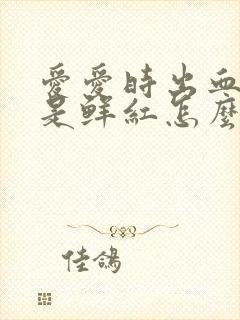 愛愛時出血
是鮮紅怎麼
佳鴿